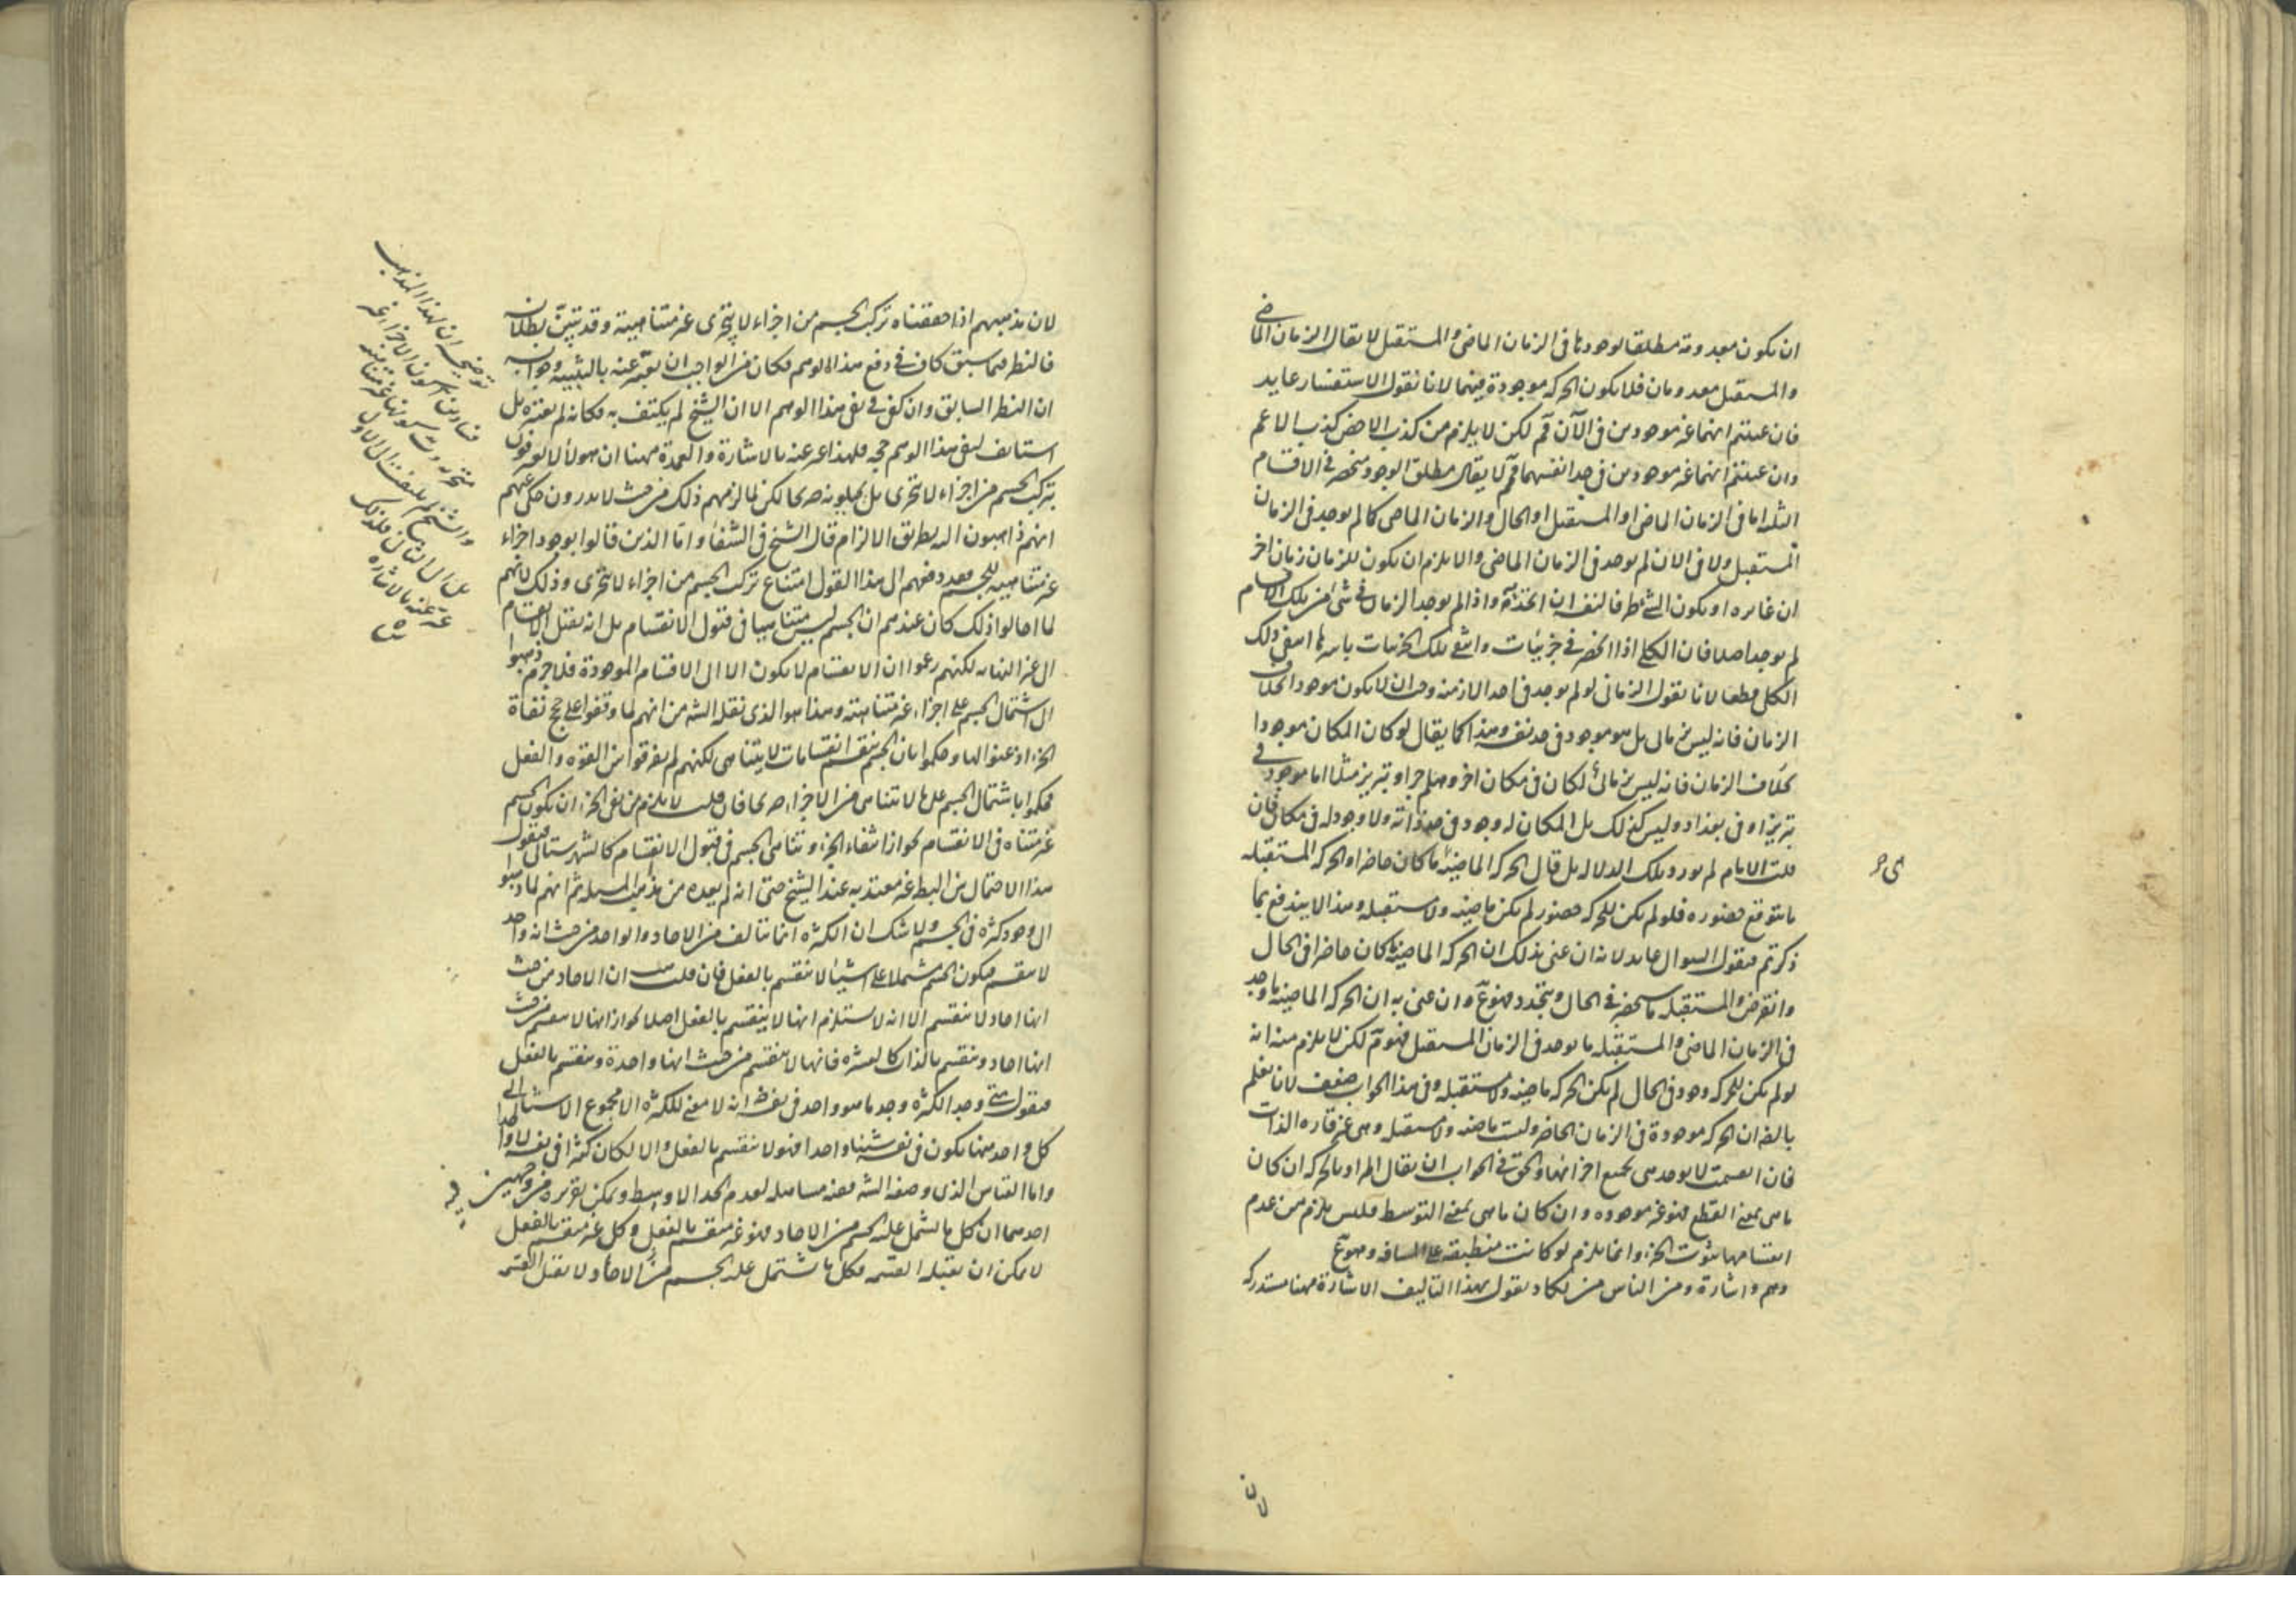 ان يكون معدومة مطلقا لوجودها فى الزمان الماضى والمستقبل لا يقال الزمان الماضى
والمستقبل معدومان فلا يكون الحركه موجودة فيهما لانا نقول الاستفسار عايد
فان عنيتم انهما غير موجودين فى الآن فم لكن لا يلزم من كذب الاخص كذب الاعم
وان عنيتم انهما غير موجودين فى حد انفسهما فمم لا يقال مطلق الوجود منحصر فى الاقسام
الثلثه اما فى الزمان الماضى او المستقبل او الحال والزمان الماضى كما لم يوجد فى الزمان
المستقبل ولا فى الآن لم يوجد فى الزمان الماضى والا يلزم ان يكون للزمان زمان اخر
ان غايره او يكون الشئ ظرفا لنفسه ان اتحد به واذا لم يوجد الزمان فى شئ من تلك الاقسام
لم يوجد اصلا فان الكلى اذا انحصر فى جزئيات وانتفى تلك الجزئيات باسرها انتفى ذلك
الكلى قطعا لانا نقول الزمانى لو لم يوجد فى احد الازمنه وجب ان لا يكون موجودا بخلاف
الزمان فانه ليس زمانى بل هو موجود فى حد نفسه وهذا كما يقال لو كان المكان موجودا
بخلاف الزمان فانه ليس زمانى لكان فى مكان اخر وهلم جرا وتبريز مثلا اما موجود فى
تبريز او فى بغداد وليس كذلك بل المكان له وجود فى حد ذاته ولا وجود له فى مكان فان
قلت الامام لم يورد تلك الدلاله بل قال الحركه الماضيه ما كان حاضرا والحركه المستقبله
ما يتوقع حضوره فلو لم يكن للحركه حضور لم يكن ماضيه ولا مستقبله وهذا لا يندفع بما
ذكرتم فنقول السوال عايد لانه ان عنى بذلك ان الحركه الماضيه ما كان حاضرا فى الحال
وانقرض والمستقبله ما سيحضر فى الحال ويتجدد فهو مم وان عنى به ان الحركه الماضيه ما وجد
فى الزمان الماضى والمستقبله ما يوجد فى الزمان المستقبل فهو م لكن لا يلزم منه انه
لو لم يكن للحركه وجود فى الحال لم يكن الحركه ماضيه ولا مستقبله وفى هذا الجواب ضعف لانا نعلم
بالضه ان الحركه موجودة فى الزمان الحاضر وليست ماضيه ولا مستقبله وهى غير قاره الذات
فان انقسمت لا يوجد هى بجميع اجزائها والحق فى الجواب ان يقال المراد بالحركه ان كان
ما هى بمعنى القطع فهو غير موجوده وان كان ما هى بمعنى التوسط فليس يلزم من عدم
انقسامها ثبوت الجزء وانما يلزم لو كانت منطبقه على المسافه وهو مم
وهم واشارة ومن الناس من يكاد يقول بهذا التأليف الاشارة ههنا مستدركه
لان
لان مذهبهم اذا حققناه تركب الجسم من اجزاء لا يتجزى غير متناهية وقد تبين بطلانه
فالنظر فيما سبق كاف فى دفع هذا الوهم فكان من الواجب ان يعبر عنه بالتنبيه وجوابه
ان النظر السابق وان كفى فى نفى هذا الوهم الا ان الشيخ لم يكتف به فكانه لم يعتبره بل
استانف لنفى هذا الوهم حجه فلهذا عبر عنه بالاشارة والعمدة ههنا ان هولاء لا يعرفون
بتركب الجسم من اجزاء لا يتجزى بل يحيلونه صريحا لكن لما لزمهم ذلك من حيث لا يدرون حكى عنهم
انهم ذاهبون اليه بطريق الالزام قال الشيخ فى الشفاء واما الذين قالوا بوجود اجزاء
غير متناهيه للجسم فقد دفعهم الى هذا القول امتناع تركب الجسم من اجزاء لا يتجزى وذلك لانهم
لما احالوا ذلك كان عندهم ان الجسم ليس متناهيا فى قبول الانقسام بل انه يقبل الانقسام
الى غير النهايه لكنهم زعموا ان الانقسام لا يكون الا الى الاقسام الموجودة فلا جرم ذهبوا
الى اشتمال الجسم على اجزاء غير متناهيه وهذا هو الذى نقله الشه من انهم لما وقفوا على حجج نفاة
الجزء اذعنوا لها وحكموا بان الجسم ينقسم انقسامات لا يتناهى لكنهم لم يفرقوا بين القوه والفعل
فحكموا باشتمال الجسم على ما لا يتناهى من الاجزاء صريحا فان قلت لا يلزم من نفى الجزء ان يكون الجسم
غير متناه فى الانقسام لجواز انتفاء الجزء وتناهى الجسم فى قبول الانقسام كالشهرستانى فنقول
هذا الاحتمال بين البطلان غير معتد به عند الشيخ حتى انه لم يعده من مذاهب المسئله ثم انهم لما ذهبوا
الى وجود كثره فى الجسم ولا شك ان الكثره انما يتالف من الاحاد والواحد من حيث انه واحد
لا ينقسم فيكون الجسم مشتملا على اشياء لا ينقسم بالفعل فان قلت ان الاحاد من حيث
انها احاد لا ينقسم الا انه لا يستلزم انها لا ينقسم بالفعل اصلا لجواز انها لا ينقسم من حيث
انها احاد وينقسم بالذات كالعشره فانها لا ينقسم من حيث انها واحدة وينقسم بالفعل
فنقول متى وجد الكثره وجد ما هو واحد فى نفسه اذ لا معنى للكثره الا مجموع الاشياء التى
كل واحد منها يكون فى نفسه شيئا واحدا فهو لا ينقسم بالفعل والا لكان كثيرا فى نفسه لا واحدا
واما القياس الذى وصفه الشه ففيه مساهله لعدم الحد الاوسط ويمكن تقريره من وجهين
احدهما ان كل ما يشتمل عليه الجسم من الاحاد فهو غير منقسم بالفعل وكل غير منقسم بالفعل
لا يمكن ان يقبله القسمه فكل ما يشتمل عليه الجسم من الاحاد لا يقبل القسمه
توضيحه ان لهذا المذهب
فسادين كون الاجزاء غير
متجزيه و كونها غير متناهيه
والشيخ لم يلتفت الى الاول
عبر عنه بالاشاره